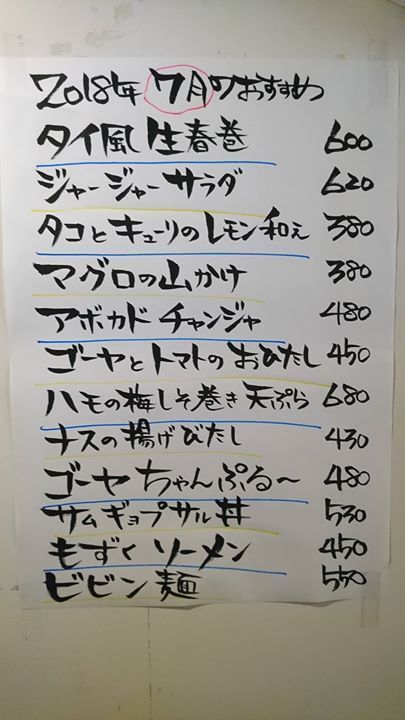 2018年7月のおすすめ
タイ風生春巻 600
ジャージャーサラダ 620
タコとキューリのレモン和え 380
マグロの山かけ 380
アボカドチャンジャ 480
ゴーヤとトマトのおひたし 450
ハモの梅しそ巻き天ぷら 680
ナスの揚げびたし 430
ゴーヤちゃんぷる〜 480
サムギョプサル丼 530
もずくソーメン 450
ビビン麺 550